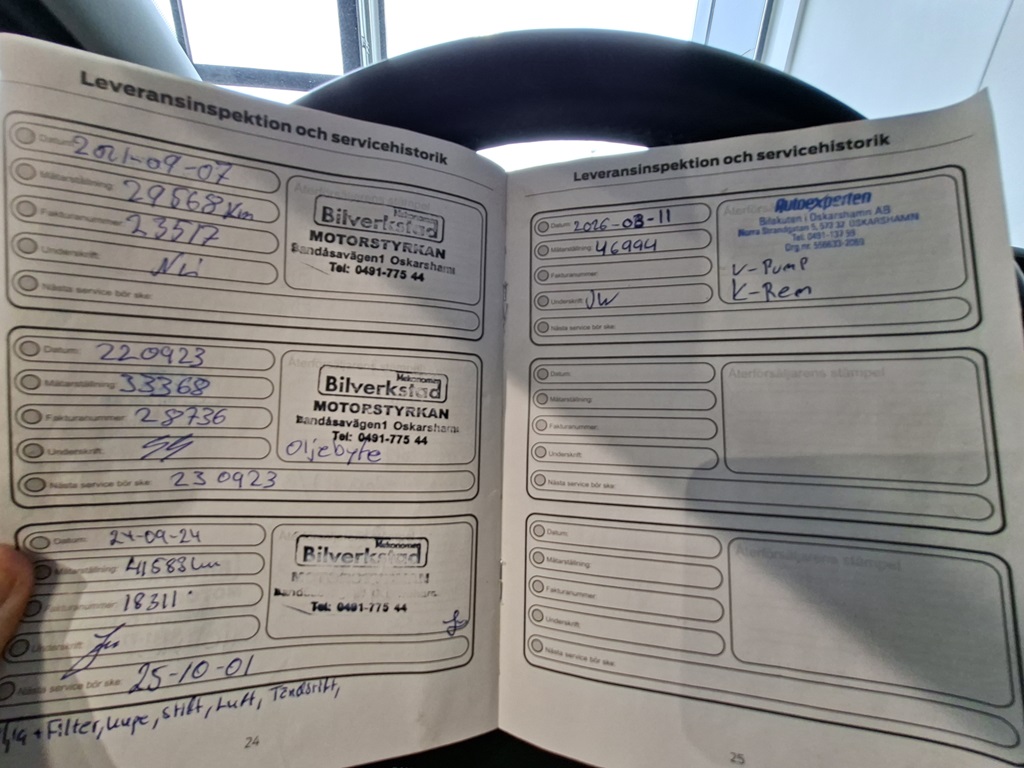 Leveransinspektion och servicehistorik
Datum: 2021-09-07
Mätarställning: 29568 km
Fakturanummer: 23517
Underskrift:
Nästa service bör ske:
Återförsäljarens stämpel
Mekonomen
Bilverkstad
MOTORSTYRKAN
Bandåsavägen1 Oskarshamn
Tel: 0491-775 44
Datum: 220923
Mätarställning: 33368
Fakturanummer: 28736
Underskrift:
Nästa service bör ske: 230923
Mekonomen
Bilverkstad
MOTORSTYRKAN
Bandåsavägen1 Oskarshamn
Tel: 0491-775 44
Oljebyte
Datum: 24-09-24
Mätarställning: 41683 km
Fakturanummer: 18311
Underskrift:
Nästa service bör ske: 25-10-01
Mekonomen
Bilverkstad
Tel: 0491-775 44
+Filter, kupe, stift, Luft,
24
Leveransinspektion och servicehistorik
Datum: 2026-03-11
Mätarställning: 46994
Fakturanummer:
Underskrift: JW
Nästa service bör ske:
Autoexperten
Bilakuten i Oskarshamn AB
Norra Strandgatan 5, 572 32 OSKARSHAMN
Tel. 0491-133 99
V-Pump
K-Rem
Datum:
Mätarställning:
Fakturanummer:
Underskrift:
Nästa service bör ske:
Återförsäljarens stämpel
Datum:
Mätarställning:
Fakturanummer:
Underskrift:
Nästa service bör ske:
Återförsäljarens stämpel
25